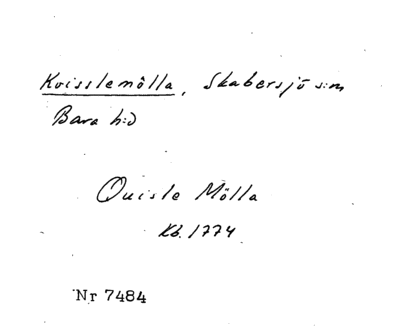 Kvisslemölla, Skabersjö s:n
Bara h:d
Quisle Mölla
Kb. 1774
Nr 7484